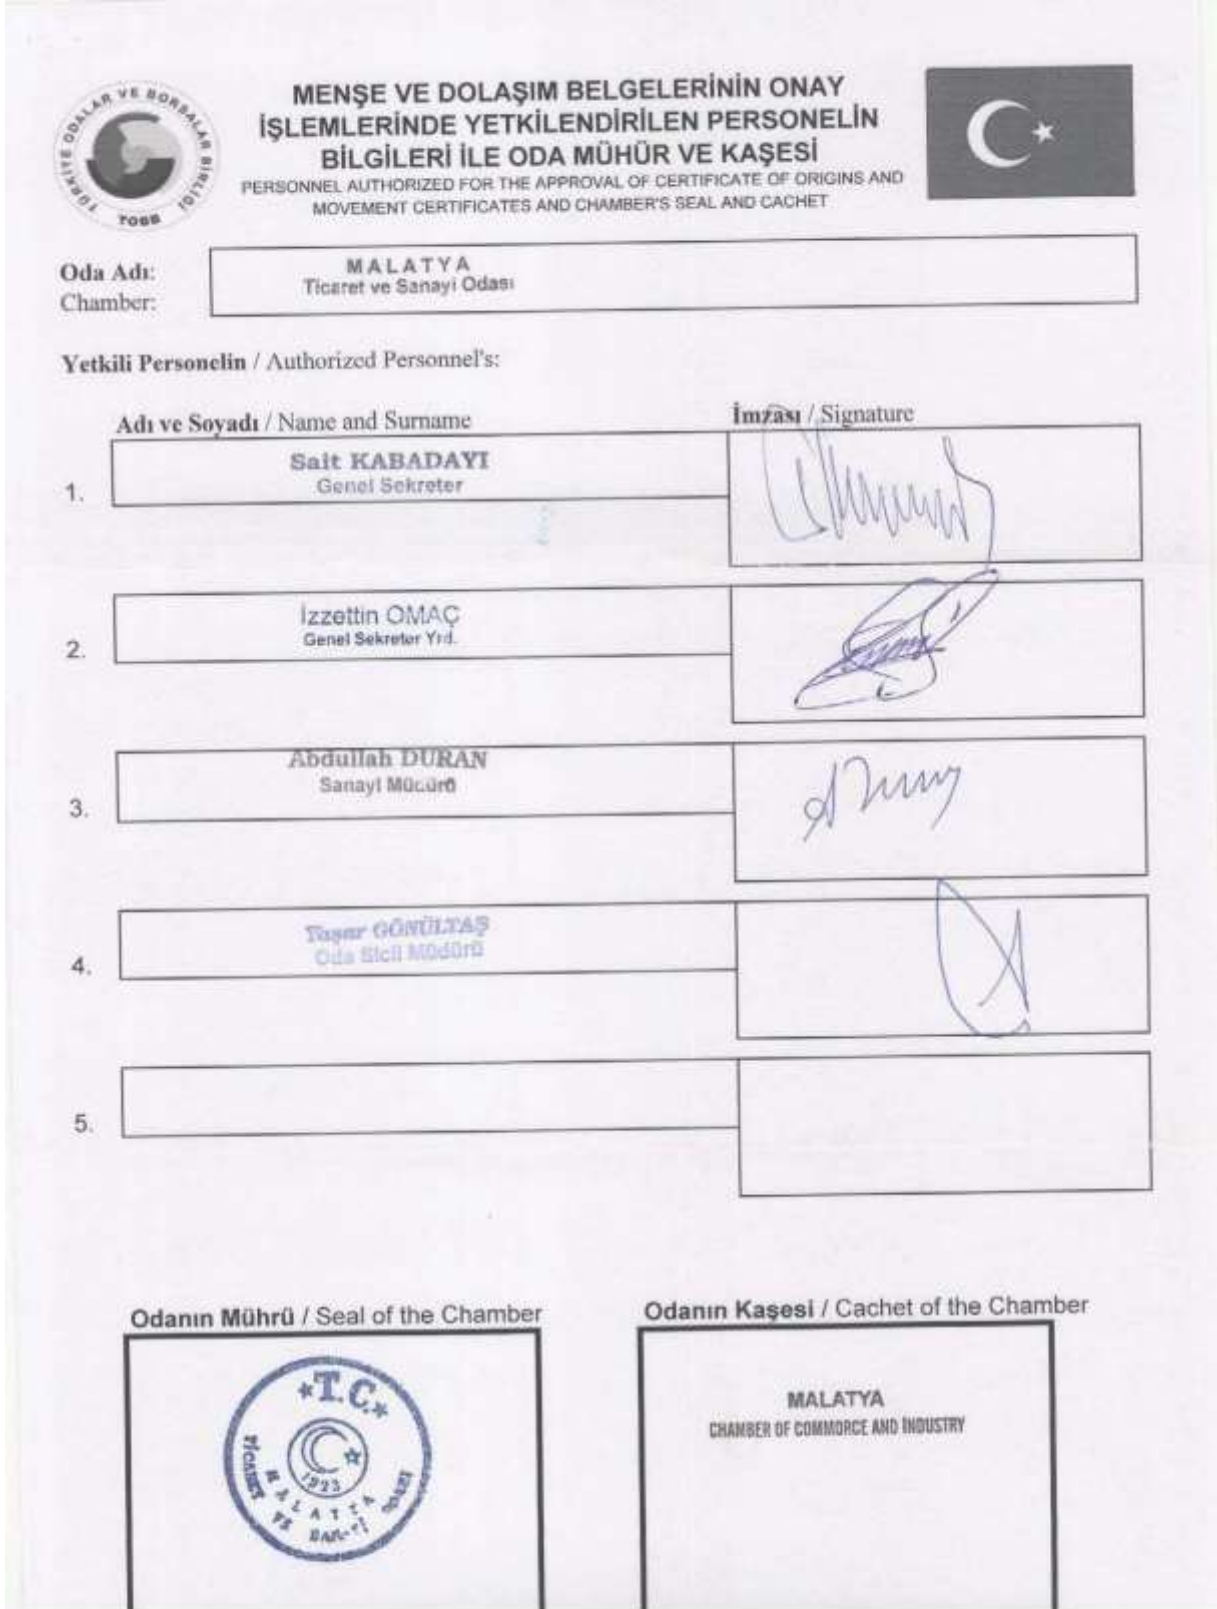 TÜRKİYE ODALAR VE BORSALAR BİRLİĞİ
TOBB
MENŞE VE DOLAŞIM BELGELERİNİN ONAY
İŞLEMLERİNDE YETKİLENDİRİLEN PERSONELİN
BİLGİLERİ İLE ODA MÜHÜR VE KAŞESİ
PERSONNEL AUTHORIZED FOR THE APPROVAL OF CERTIFICATE OF ORIGINS AND
MOVEMENT CERTIFICATES AND CHAMBER'S SEAL AND CACHET
Oda Adı:
Chamber:
MALATYA
Ticaret ve Sanayi Odası
Yetkili Personelin / Authorized Personnel's:
Adı ve Soyadı / Name and Surname
İmzası / Signature
1.
Sait KABADAYI
Genel Sekreter
2.
İzzettin OMAÇ
Genel Sekreter Yrd.
3.
Abdullah DURAN
Sanayi Müdürü
4.
Yaşar GÖNÜLTAŞ
Oda Sicil Müdürü
5.
Odanın Mührü / Seal of the Chamber
Odanın Kaşesi / Cachet of the Chamber
T.C.
1923
MALATYA
TİCARET VE
MALATYA
CHAMBER OF COMMORCE AND İNDUSTRY